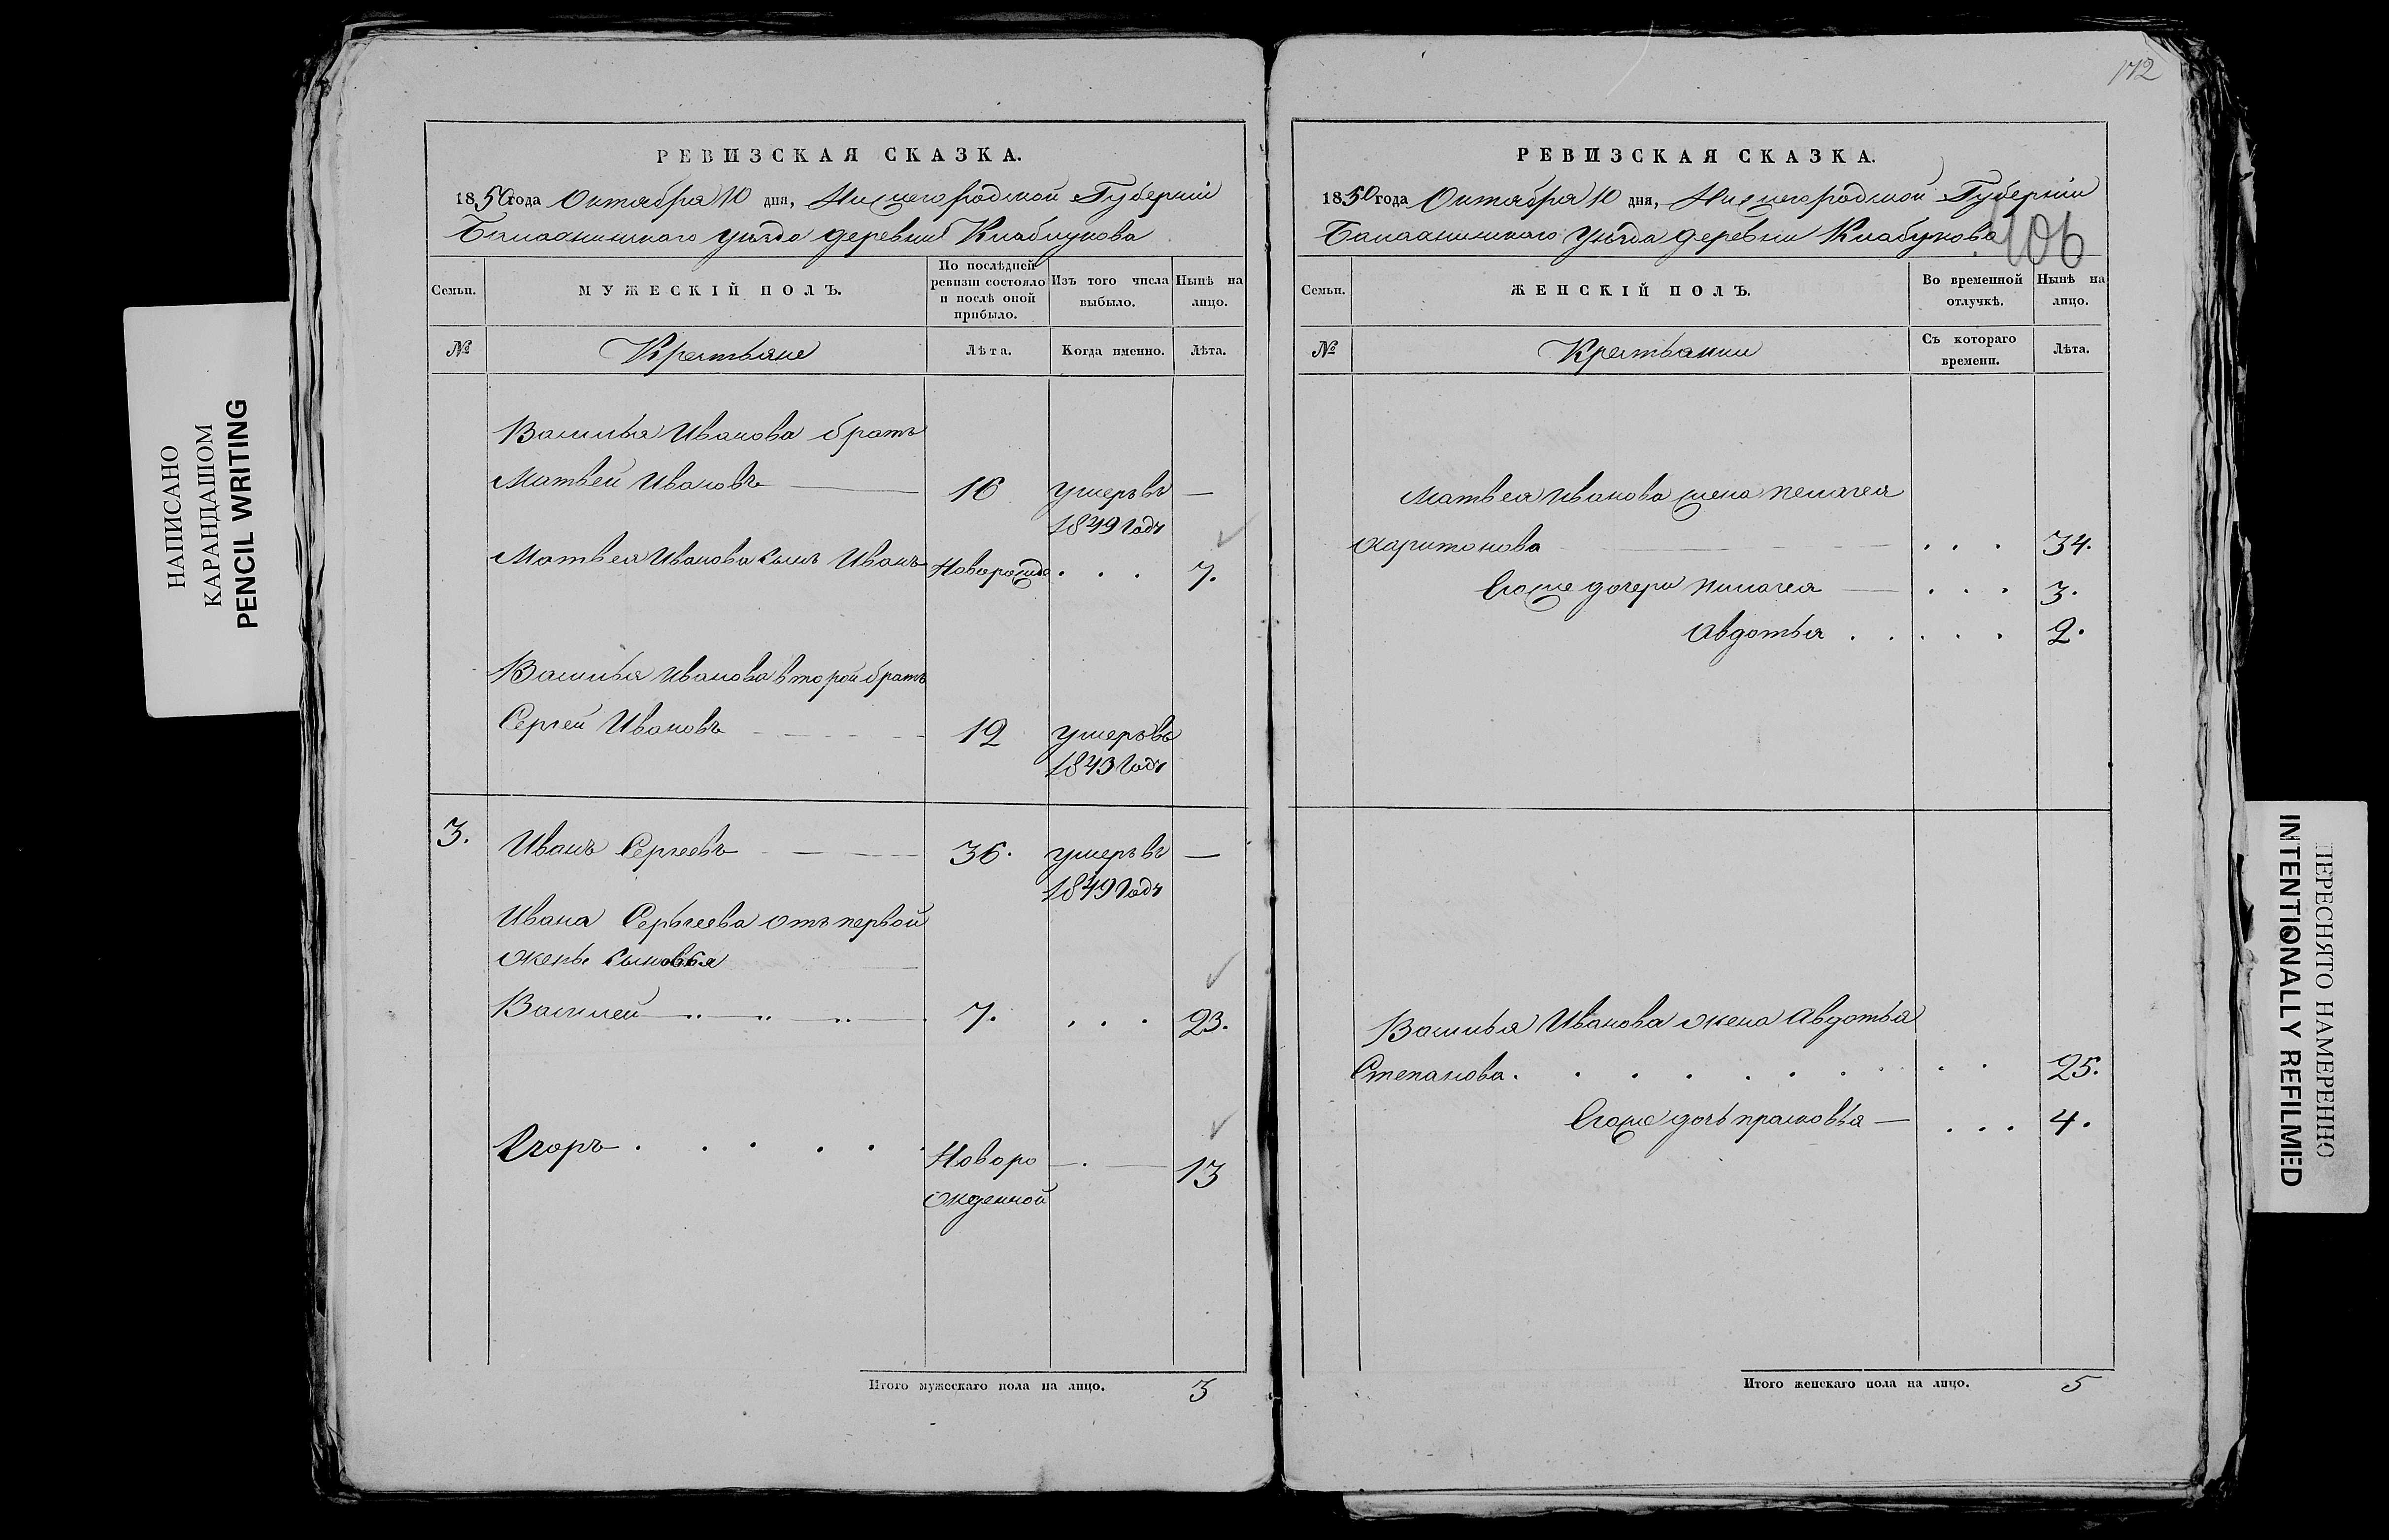 172
106
НАПИСАНО
КАРАНДАШОМ
PENCIL WRITING
РЕВИЗСКАЯ СКАЗКА.
1850 года Октября 10 дня, Нижегородской Губерніи
Балахнинскаго уѣзда деревни
Семьи.
МУЖЕСКІЙ ПОЛЪ.
По послѣдней ревизіи состояло и послѣ оной прибыло.
Изъ того числа выбыло.
Нынѣ на лицо.
№
Крестьяне
Лѣта.
Когда именно.
Лѣта.
Василья Иванова братъ
Матвей Ивановъ 16 умеръ въ —
1849 годъ
Матвея Иванова сынъ Иванъ Новорожд . . . 7.
Василья Иванова второй братъ
Сергей Ивановъ 19 умеръ въ
1843 годъ
3. Иванъ Сергеевъ 36. умеръ въ —
1849 годъ
Ивана Сергеева отъ первой
жены сыновья
Василей 7. . . . 23.
Егоръ . . . . . Новоро —.— 13
жденной
Итого мужескаго пола на лицо. 3
РЕВИЗСКАЯ СКАЗКА.
1850 года Октября 10 дня, Нижегородской Губерніи
Балахнинскаго уѣзда деревни
Семьи.
ЖЕНСКІЙ ПОЛЪ.
Во временной отлучкѣ.
Нынѣ на лицо.
№
Крестьянки
Съ котораго времени.
Лѣта.
Матвея Иванова жена Пелагея
Харитонова . . . 34.
Егоже дочери Пилагея — . . . 3.
Авдотья . . . . . 2.
Василья Иванова жена Авдотья
Степанова. . . . . . . . . . 25.
Егоже дочь прасковья — . . . 4.
Итого женскаго пола на лицо. 5
ПЕРЕСНЯТО НАМЕРЕННО
INTENTIONALLY REFILMED